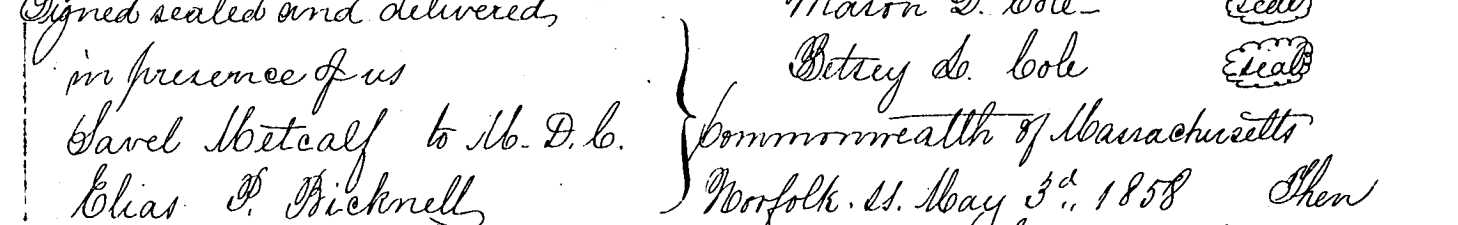 Signed sealed and delivered
in presence of us
Savel Metcalf to M. D. C.
Elias P. Bicknell
Mason D. Cole
seal
Betsey D. Cole
seal
Commonwealth of Massachusetts
Norfolk. ss. May 3d, 1858 Then